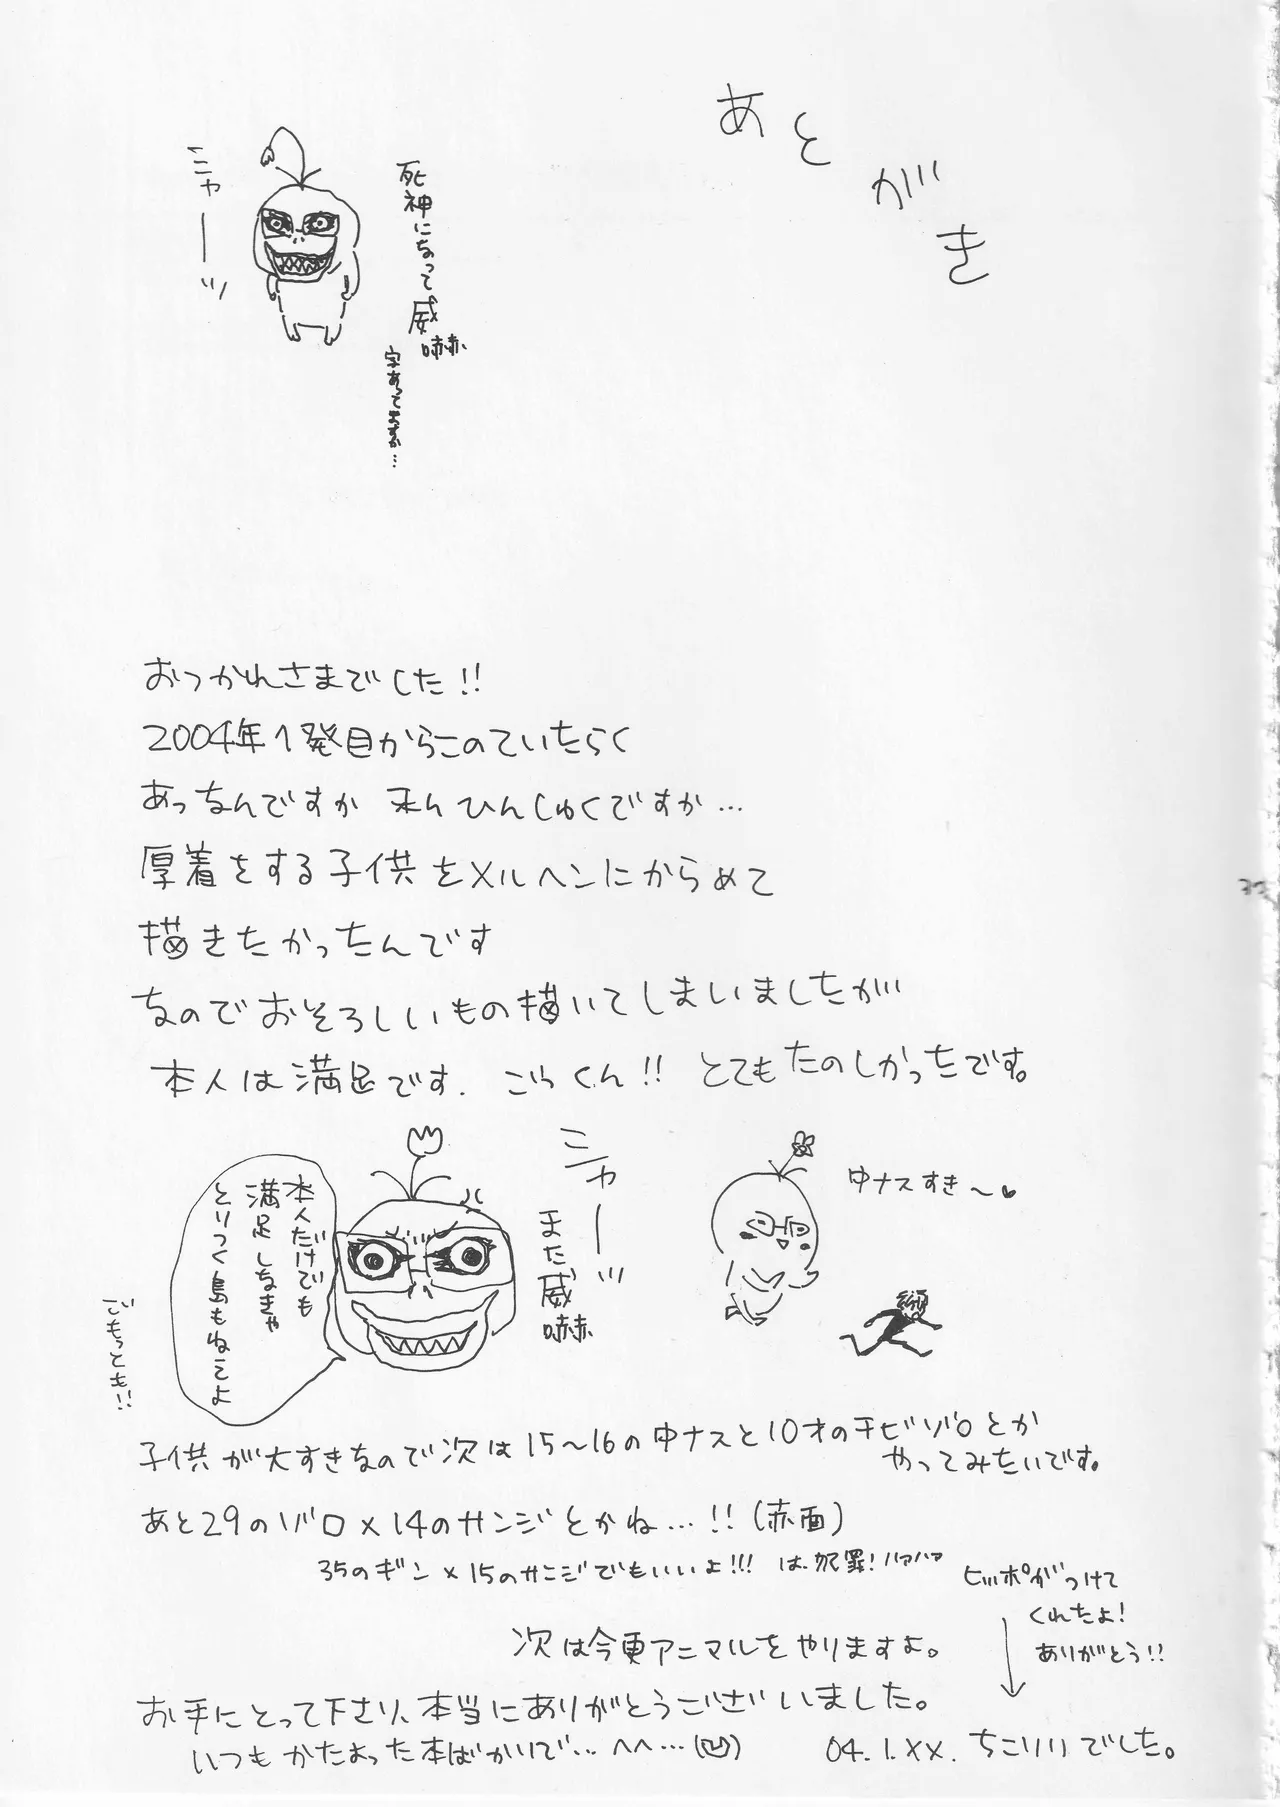 あとがき
死神になって威嚇
字あってますか…
ニャーッ
おつかれさまでした!!
2004年1発目からこのていたらく
あっなんですか まんひんしゅくですか…
厚着をする子供をメルヘンにからめて
描きたかったんです
なのでおそろしいもの描いてしまいましたが
本人は満足です. ごっくん!! とてもたのしかったです。
中ナスすき〜♥
ニャーッ
また威嚇
本人だけでも
満足しなきゃ
とりつく島もねぇよ
ごもっとも!!
子供が大すきなので次は15〜16の中ナスと10才のチビゾロとか
やってみたいです。
あと29のゾロ×14のサンジとかね…!!(赤面)
35のギン×15のサンジでもいいよ!!! は.犯罪!ハァハァ
ヒッポがつけて
くれたよ!
ありがとう!!
次は今更アニマルをやりますよ。
お手にとって下さり、本当にありがとうございました。
いつもかたよった本ばかりで…へへ…(凹)
04.1.XX. ちこりりでした。